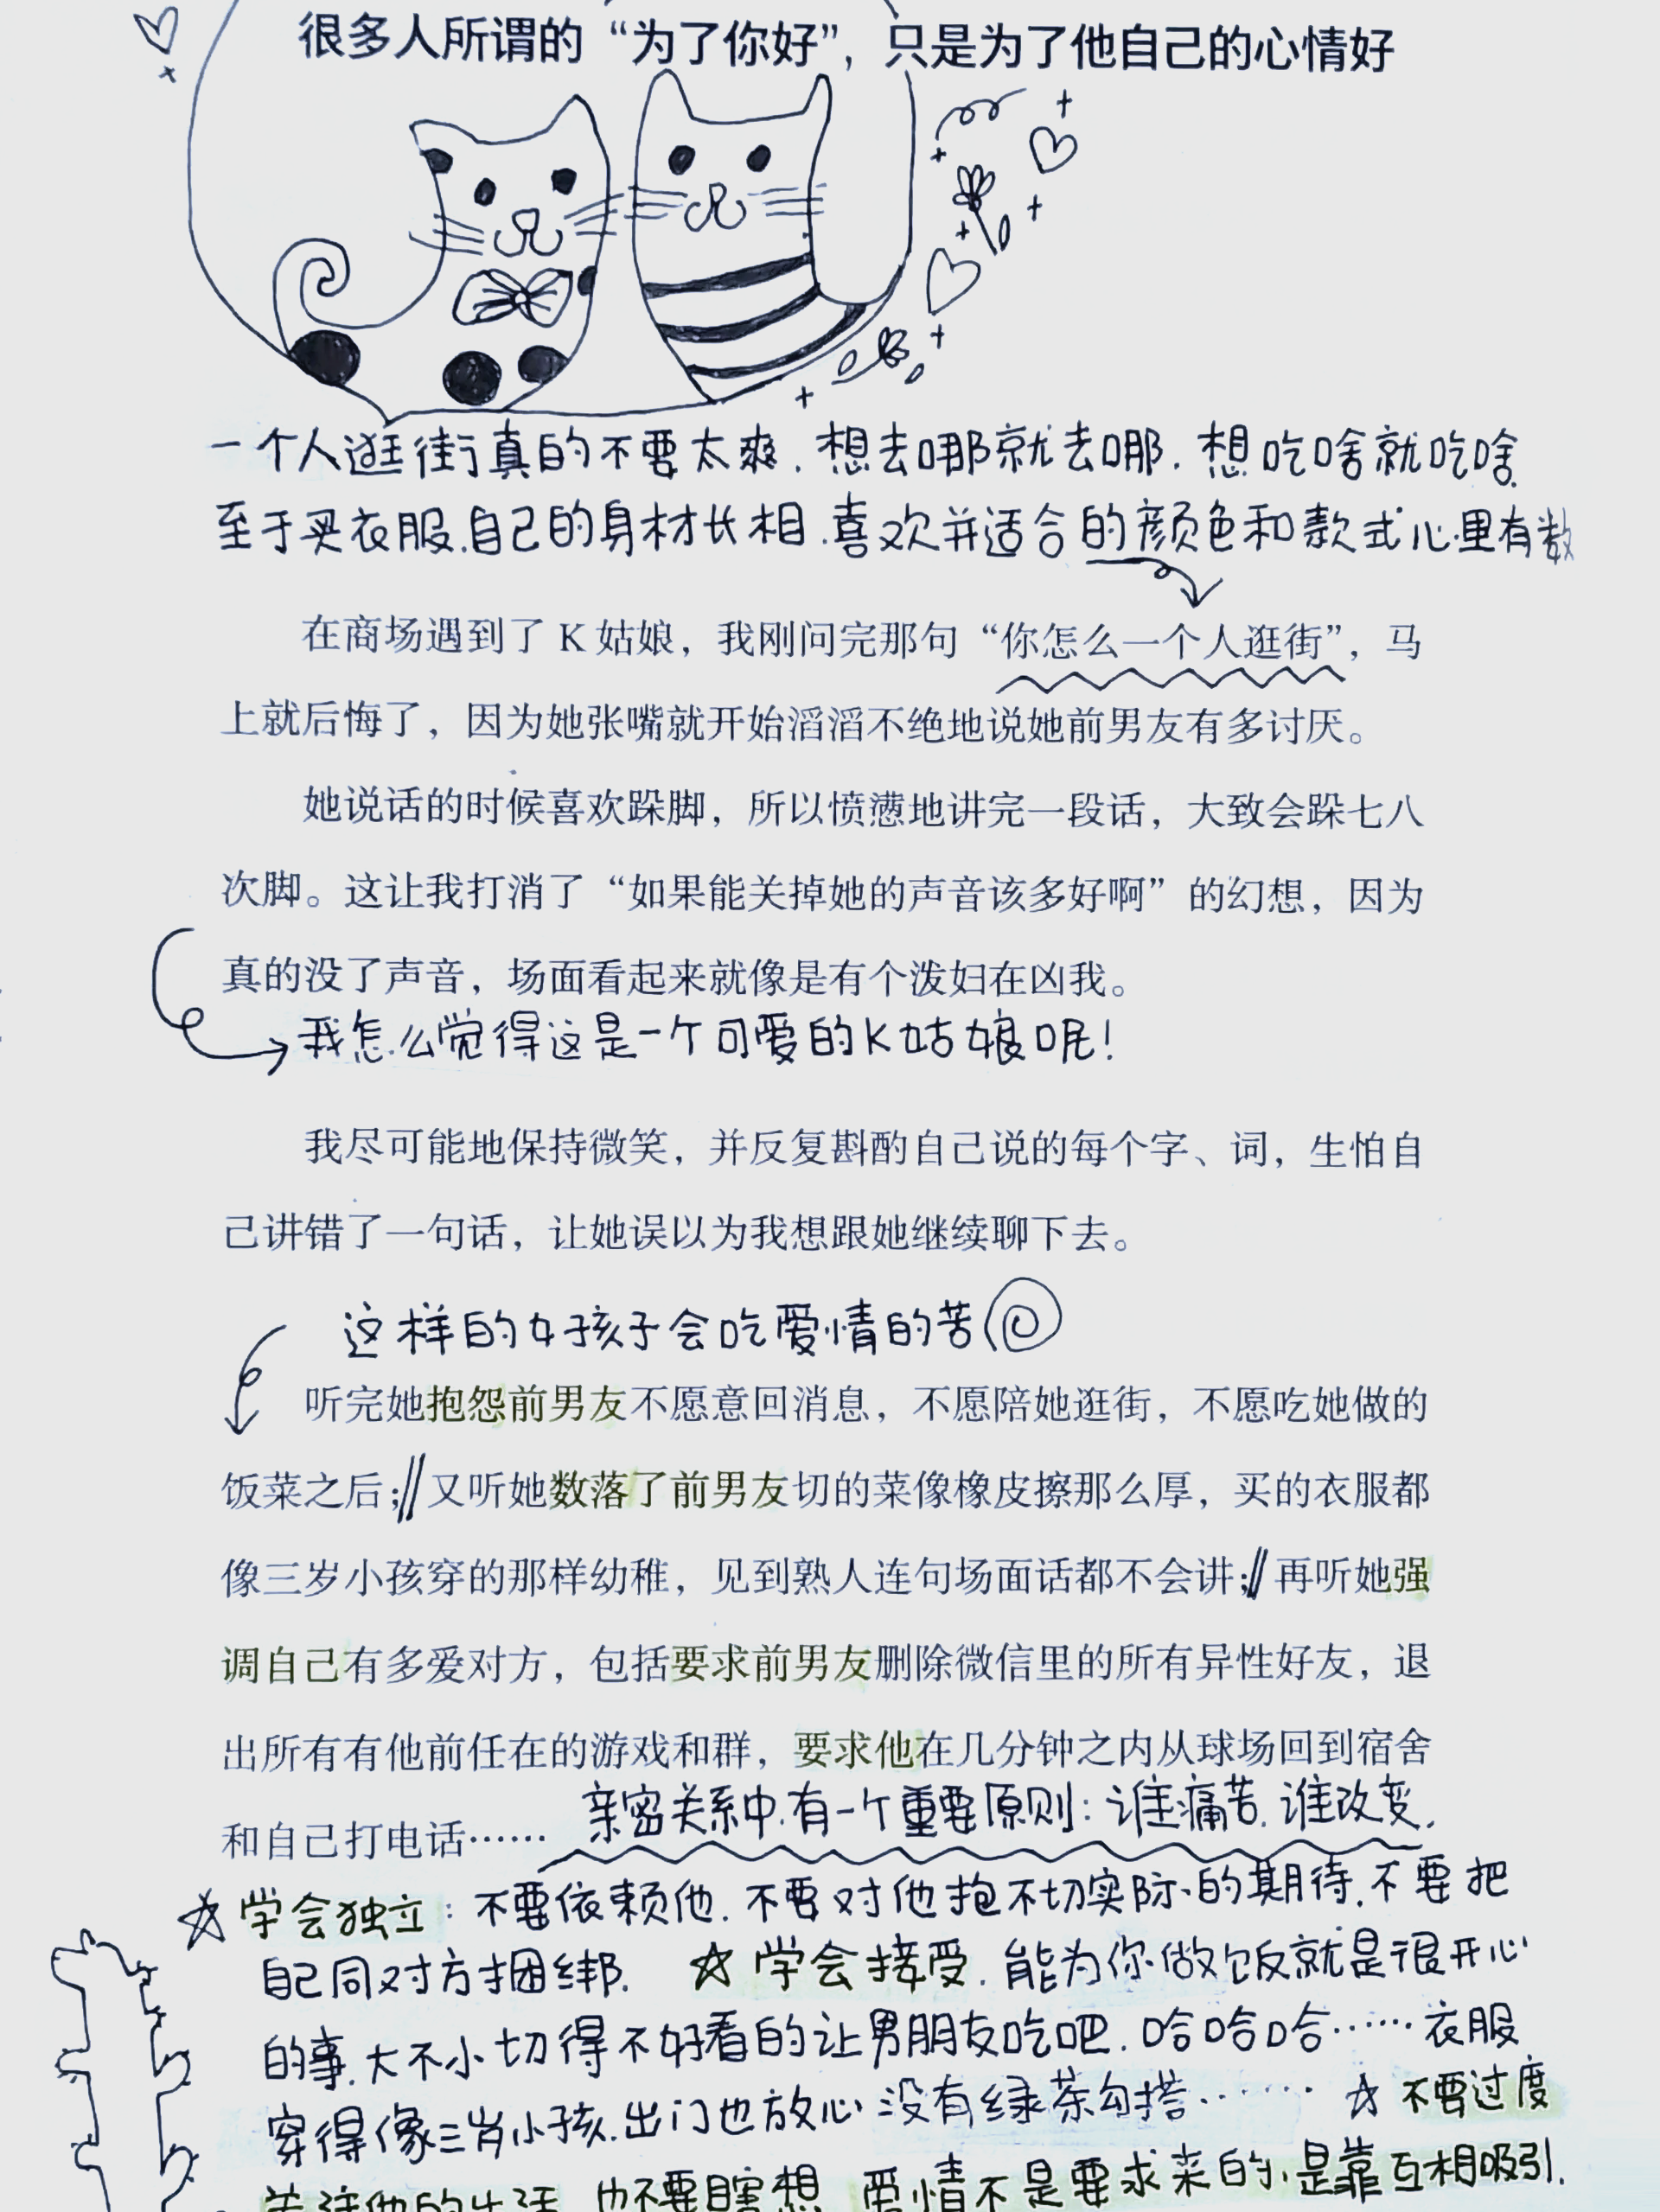 很多人所谓的“为了你好”，只是为了他自己的心情好
一个人逛街真的不要太爽.想去哪就去哪.想吃啥就吃啥.
至于买衣服.自己的身材长相.喜欢并适合的颜色和款式心里有数
在商场遇到了 K 姑娘，我刚问完那句“你怎么一个人逛街”，马
上就后悔了，因为她张嘴就开始滔滔不绝地说她前男友有多讨厌。
她说话的时候喜欢跺脚，所以愤懑地讲完一段话，大致会跺七八
次脚。这让我打消了“如果能关掉她的声音该多好啊”的幻想，因为
真的没了声音，场面看起来就像是有个泼妇在凶我。
我怎么觉得这是一个可爱的K姑娘呢!
我尽可能地保持微笑，并反复斟酌自己说的每个字、词，生怕自
己讲错了一句话，让她误以为我想跟她继续聊下去。
这样的女孩子会吃爱情的苦
听完她抱怨前男友不愿意回消息，不愿陪她逛街，不愿吃她做的
饭菜之后；又听她数落了前男友切的菜像橡皮擦那么厚，买的衣服都
像三岁小孩穿的那样幼稚，见到熟人连句场面话都不会讲；再听她强
调自己有多爱对方，包括要求前男友删除微信里的所有异性好友，退
出所有有他前任在的游戏和群，要求他在几分钟之内从球场回到宿舍
和自己打电话…… 亲密关系中.有一个重要原则:谁痛苦.谁改变.
☆学会独立:不要依赖他.不要对他抱不切实际的期待.不要把
自己同对方捆绑. ☆学会接受.能为你做饭就是很开心
的事.大不小切得不好看的让男朋友吃吧.哈哈哈……衣服
穿得像三岁小孩.出门也放心没有绿茶勾搭…… ☆不要过度
关注他的生活.也不要瞎想.爱情不是要求来的.是靠互相吸引.